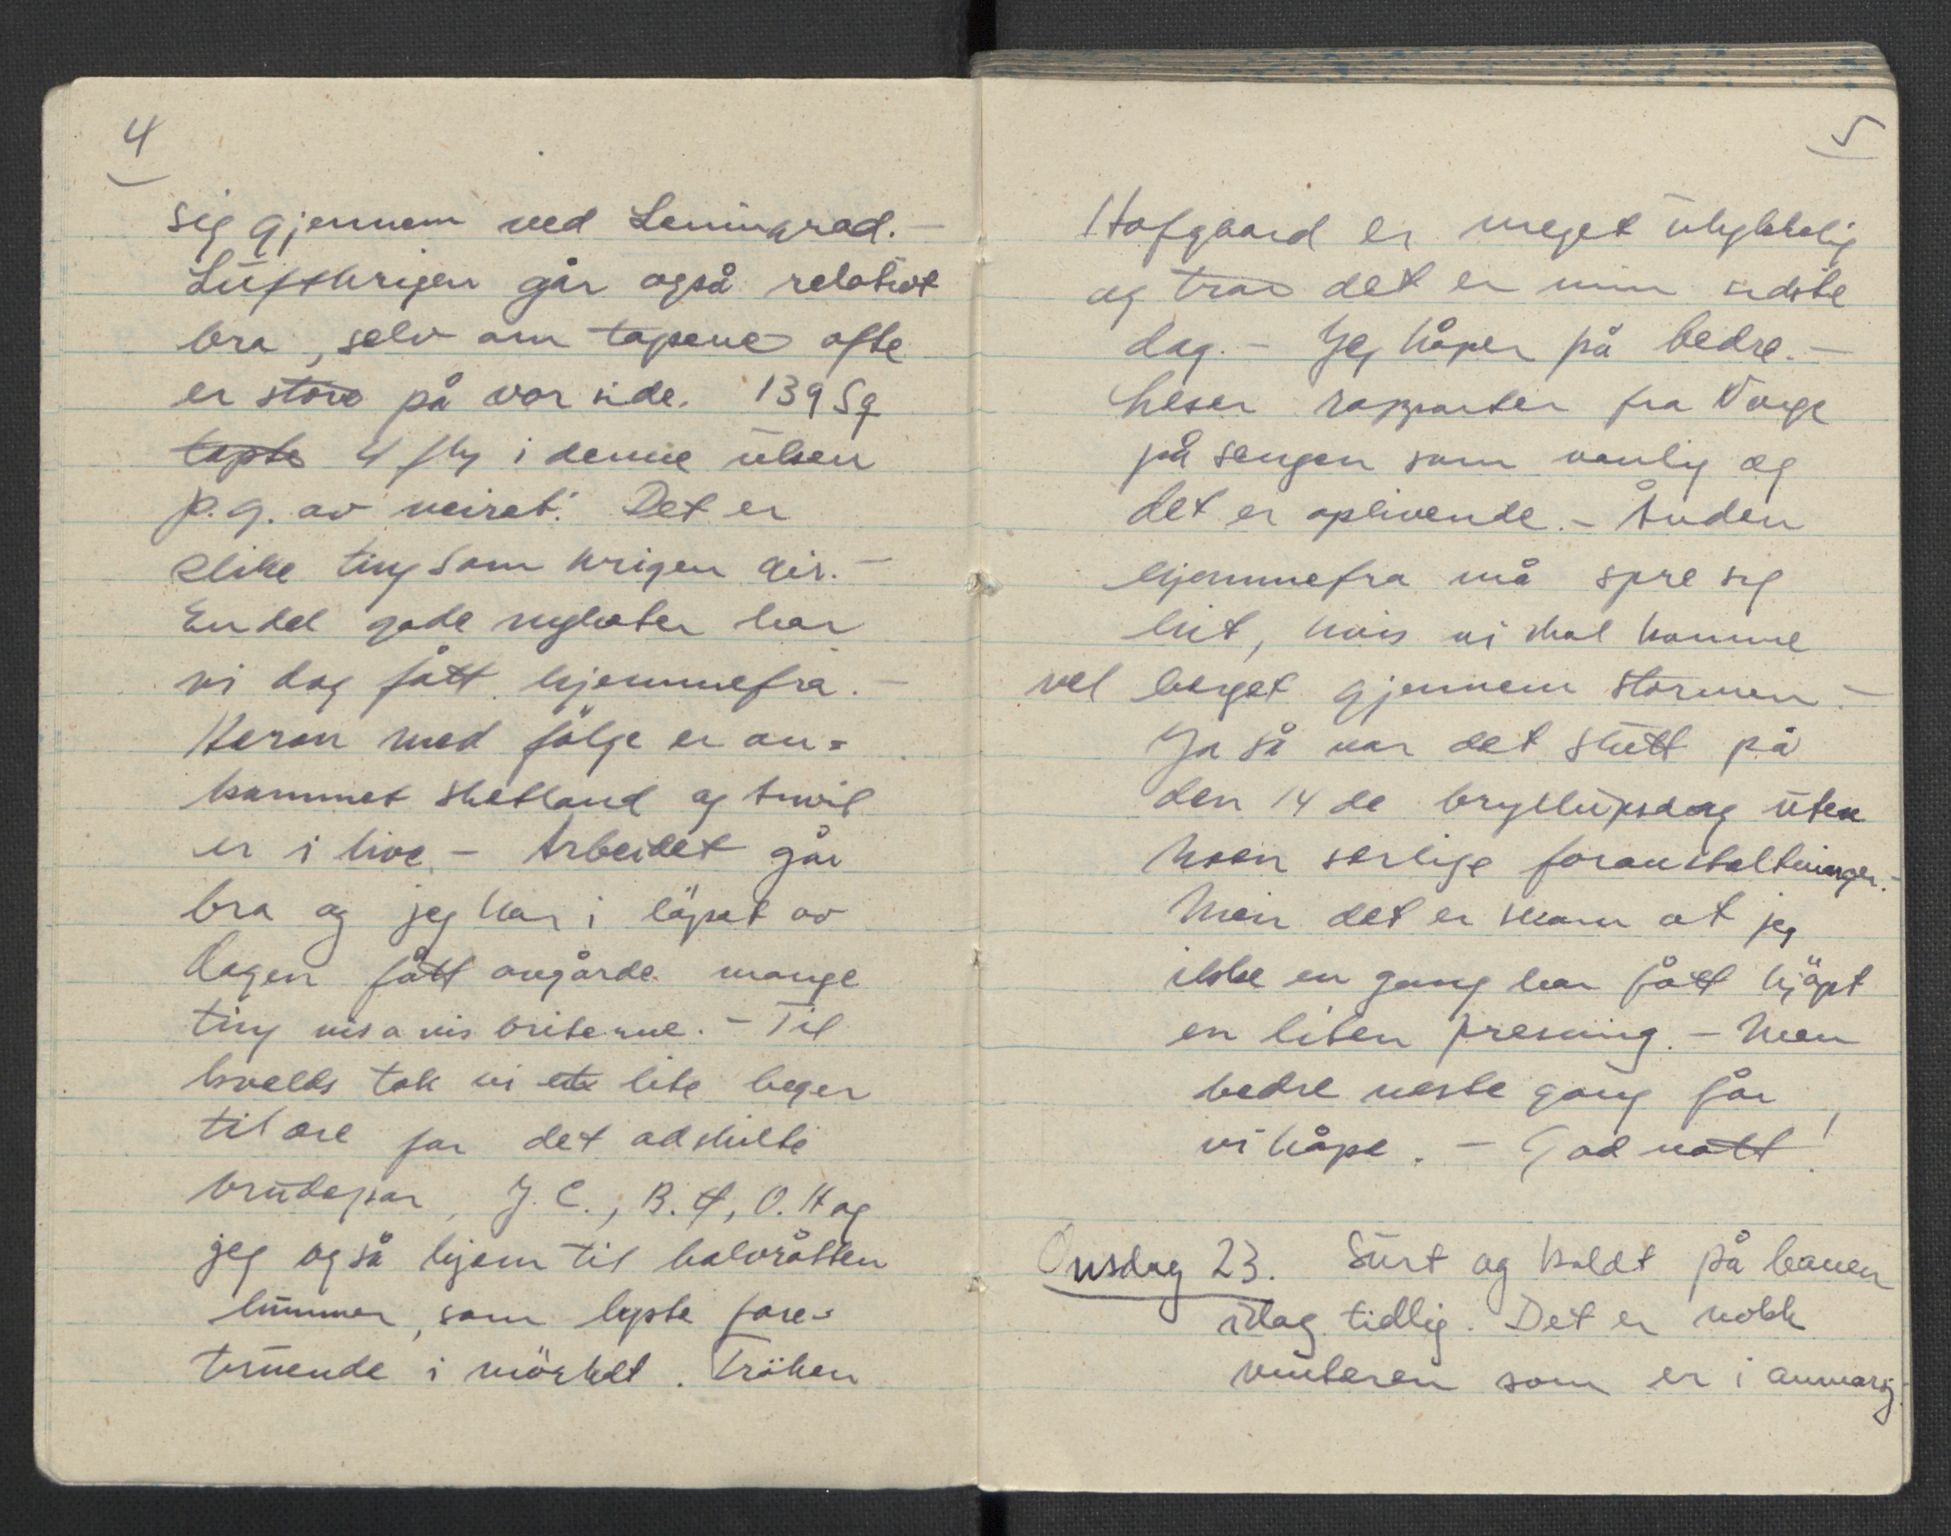 4
sig gjennem ved Leningrad. -
Luftkrigen går også relativt
bra, selv om tapene ofte
er store på vor side. 139 Sq
tapte 4 fly i denne uken
p.g. av veiret. Det er
slike ting som krigen gir. -
Endel gode nyheter har
vi dag fått hjemmefra. -
Heron med følge er an=
kommet Shetland og
er i live. - Arbeidet går
bra og jeg har i löpet av
dagen fått avgårde mange
ting vis a vis briterne. - Til
kvelds tok vi ett lite beger
til ære for det adskilte
brudepar, J.C., B. , O. H og
jeg også hjem til halvråtten
hummer, som lyste fore=
truende i mörket. Fröken
5
Hofgaard er meget ulykkelig
og tror det er min sidste
dag. - Jeg håper på bedre. -
Leser rapporter fra Norge
på sengen som vanlig og
det er oplivende. - Ånden
hjemmefra må spre sig
hit, hvis vi skal komme
vel berget gjennem stormen. -
Ja så var det slutt på
den 14 de bryllupsdag uten
noen særlige foranstaltninger. -
Men det er skam at jeg
ikke en gang har fått kjöpt
en liten presang. - Men
bedre neste gang får
vi håpe. - God natt!
Onsdag 23. Surt og koldt på banen
idag tidlig. Det er nokk
vinteren som er i anmarsj.